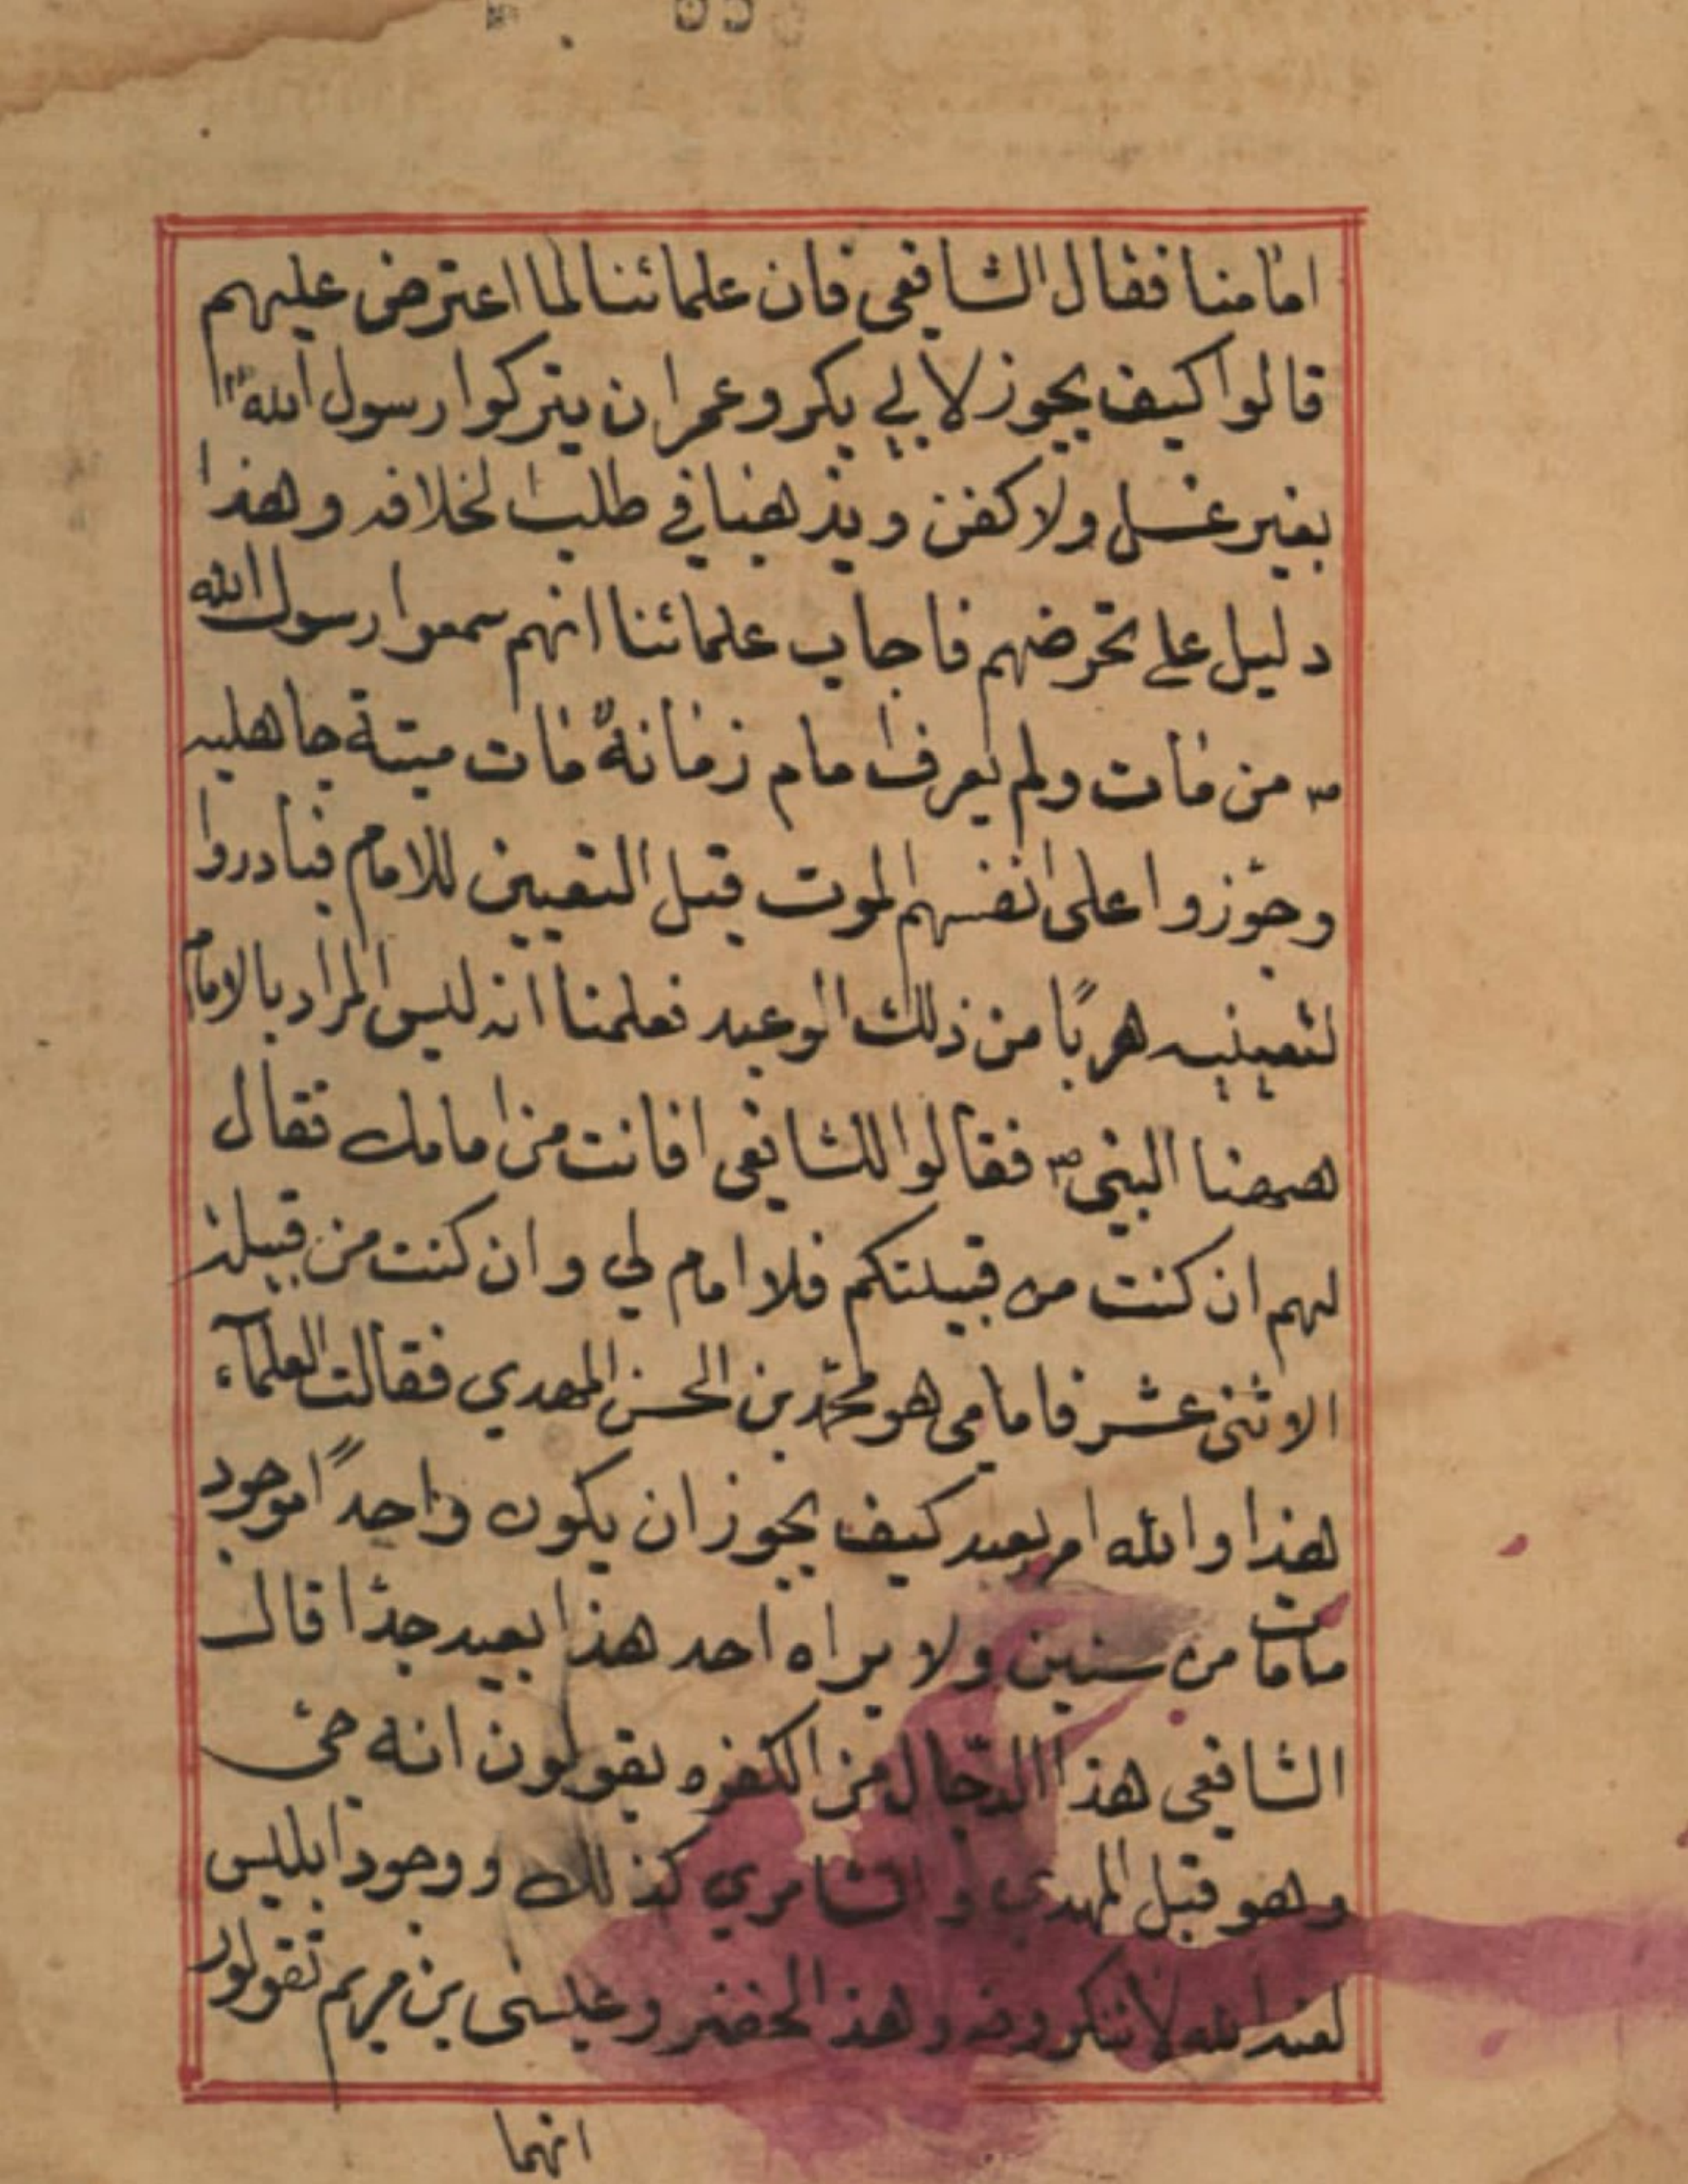 امامنا فقال الشافعي فان علمائنا لما اعترض عليهم
قالوا كيف يجوز لابي بكر وعمر ان يتركوا رسول الله ص
بغير غسل ولا كفن ويذهبنا في طلب الخلافه وهذا
دليل على تحرضهم فاجاب علمائنا انهم سمعوا رسول الله
ص من مات ولم يعرف امام زمانه مات ميتة جاهليه
وجوّزوا على انفسهم الموت قبل التعيين للامام فبادروا
لتعينيه هربًا من ذلك الوعيد فعلمنا انه ليس المراد بالامام
هيهنا النبي ص فقالوا للشافعي افانت من امامك فقال
لهم ان كنت من قبيلتكم فلا امام لي وان كنت من قبيلة
الاثني عشر فامامي هو محمّد بن الحسن المهدي فقالت العلمآء
هذا والله امر بعيد كيف يجوز ان يكون واحدًا موجود
من سنين ولا يراه احد هذا بعيد جدّا قال
الشافعي هذا الدّجال من الكفره يقولون انه حي
وهو قبل المهدي والشامري كذلك ووجود ابليس
لا تنكرونه وهذ الخضر وعيسى بن مريم تقولون
انهما